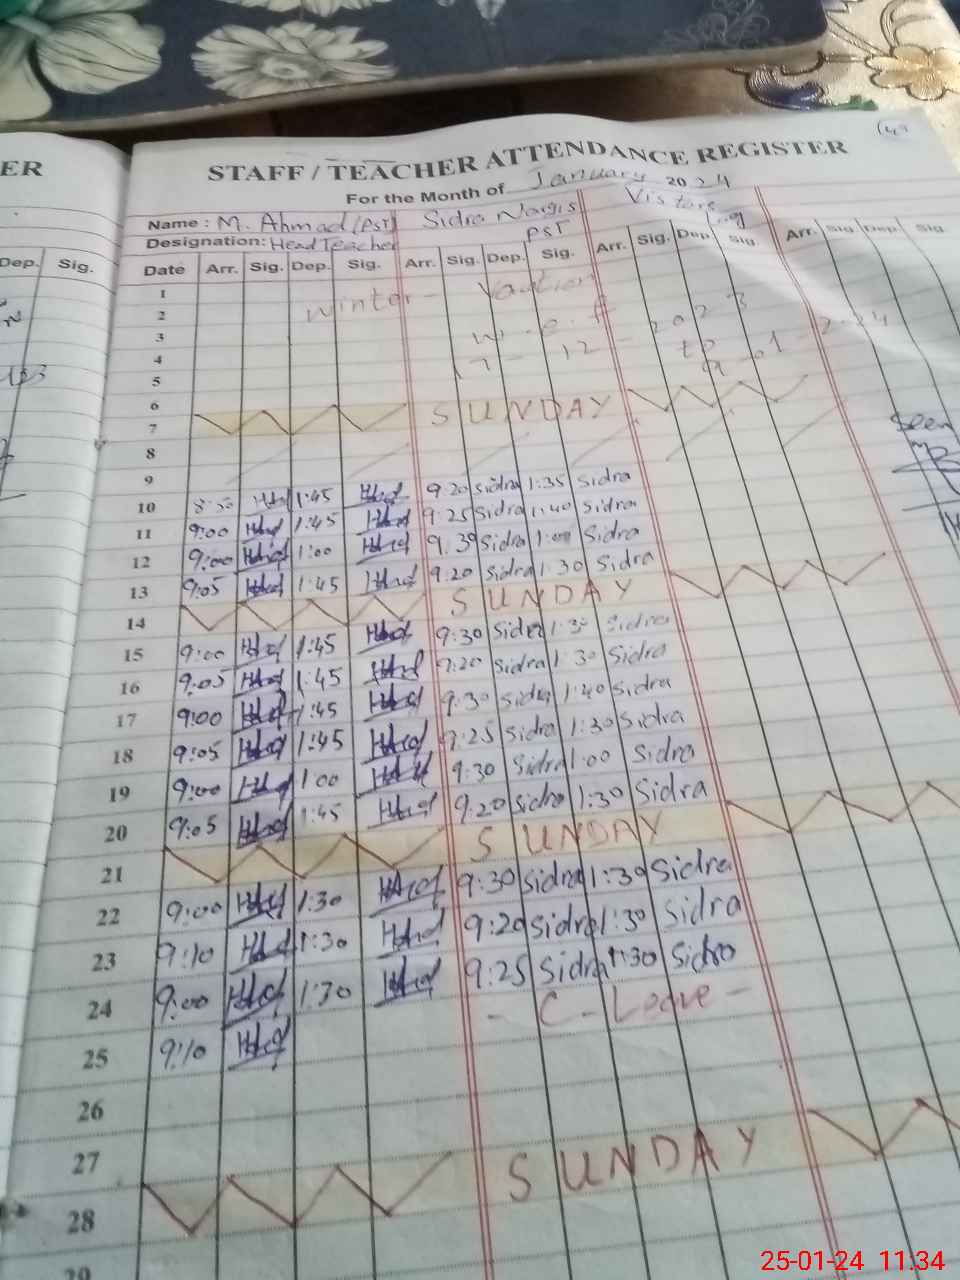 ER
STAFF / TEACHER ATTENDANCE REGISTER
For the Month of January 2024
Name : M. Ahmad (PST) Sidra Nargis Visitors
Designation: Head Teacher PST Log
Dep. Sig.
Date Arr. Sig. Dep. Sig. Arr. Sig. Dep. Sig. Arr. Sig. Dep. Sig. Arr. Sig. Dep. Sig.
1 winter - Vaction
2
3 w-e-f 2023
4 12 - to 01 - 2024
5
6
7 SUNDAY
8
9
10 1:45 9:20 Sidra 1:35 Sidra
11 9:00 1:45 9:25 Sidra 1:40 Sidra
12 9:00 1:00 9:30 Sidra 1:00 Sidra
13 9:05 1:45 9:20 Sidra 1:30 Sidra
14 SUNDAY
15 9:00 1:45 9:30 Sidra 1:30 Sidra
16 9:05 1:45 9:20 Sidra 1:30 Sidra
17 9:00 1:45 9:30 Sidra 1:40 Sidra
18 9:05 1:45 9:25 Sidra 1:30 Sidra
19 9:00 1:00 9:30 Sidra 1:00 Sidra
20 9:05 1:45 9:20 Sidra 1:30 Sidra
21 SUNDAY
22 9:00 1:30 9:30 Sidra 1:30 Sidra
23 9:10 1:30 9:20 Sidra 1:30 Sidra
24 9:00 1:30 9:25 Sidra 1:30 Sidra
25 9:10 - C - Leave -
26
27
28 SUNDAY
29
Seen
25-01-24 11:34